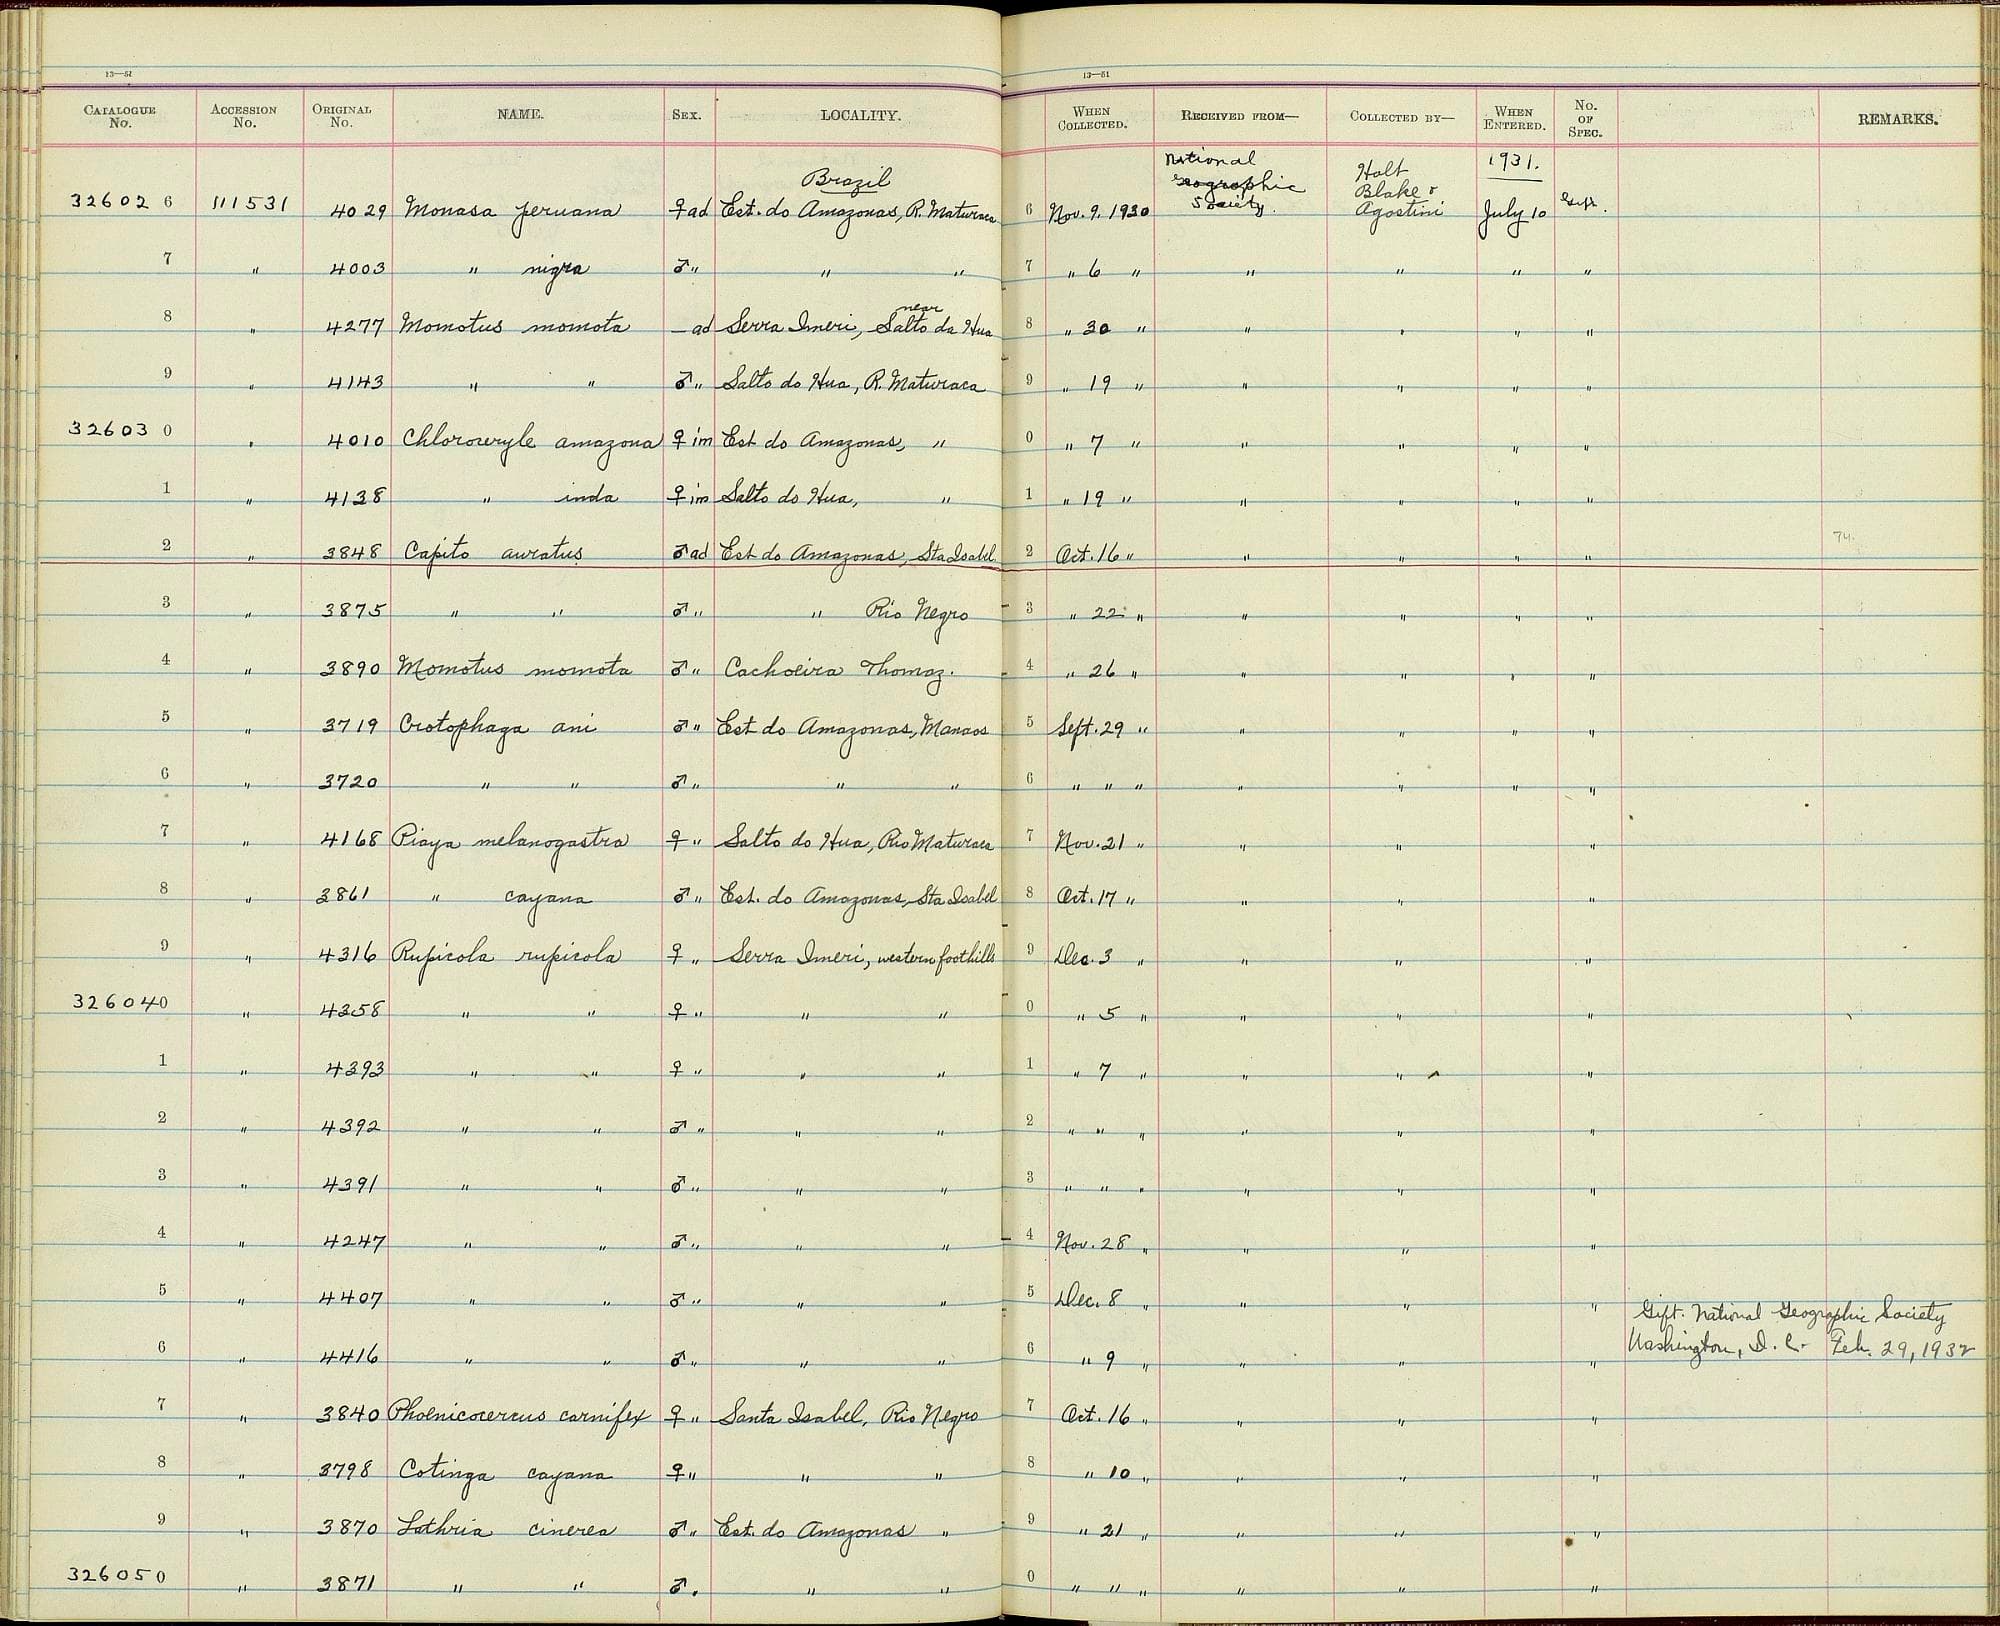 13—51
13—51
CATALOGUE No. ACCESSION No. ORIGINAL No. NAME. SEX. LOCALITY. WHEN COLLECTED. RECEIVED FROM— COLLECTED BY— WHEN ENTERED. No. OF SPEC. REMARKS.
Brazil National Geographic Society. Holt Blake & Agostini 1931.
32602 6 111531 4029 Monasa peruana ♀ ad Est. do Amazonas, R. Maturaca 6 Nov. 9. 1930 July 10
7 " 4003 " nigra ♂ " " " 7 " 6 " " " " "
8 " 4277 Momotus momota — ad Serra Imeri, near Salto da Hua 8 " 30 " " " " "
9 " 4143 " " ♂ " Salto do Hua, R. Maturaca 9 " 19 " " " " "
32603 0 " 4010 Chloroceryle amazona ♀ im Est do Amazonas, " 0 " 7 " " " " "
1 " 4138 " inda ♀ im Salto do Hua, " 1 " 19 " " " " "
2 " 3848 Capito auratus ♂ ad Est do Amazonas, Sta Isabel 2 Oct. 16 " " " " " 74.
3 " 3875 " " ♂ " " Rio Negro 3 " 22 " " " " "
4 " 3890 Momotus momota ♂ " Cachoeira Thomaz. 4 " 26 " " " " "
5 " 3719 Crotophaga ani ♂ " Est do Amazonas, Manaos 5 Sept. 29 " " " " "
6 " 3720 " " ♂ " " " 6 " " " " " " "
7 " 4168 Piaya melanogastra ♀ " Salto do Hua, Rio Maturaca 7 Nov. 21 " " " "
8 " 3861 " cayana ♂ " Est. do Amazonas, Sta Isabel 8 Oct. 17 " " " "
9 " 4316 Rupicola rupicola ♀ " Serra Imeri, western foothills 9 Dec. 3 " " " "
32604 0 " 4358 " " ♀ " " " 0 " 5 " " " "
1 " 4393 " " ♀ " " " 1 " 7 " " " "
2 " 4392 " " ♂ " " " 2 " " " " " "
3 " 4391 " " ♂ " " " 3 " " " " " "
4 " 4247 " " ♂ " " " 4 Nov. 28 " " " "
5 " 4407 " " ♂ " " " 5 Dec. 8 " " " " Gift. National Geographic Society
6 " 4416 " " ♂ " " " 6 " 9 " " " " Washington, D. C. Feb. 29, 1932
7 " 3840 Phoenicocercus carnifex ♀ " Santa Isabel, Rio Negro 7 Oct. 16 " " " "
8 " 3798 Cotinga cayana ♀ " " " 8 " 10 " " " "
9 " 3870 Lathria cinerea ♂ " Est. do Amazonas " 9 " 21 " " " "
32605 0 " 3871 " " ♂ " " " 0 " " " " " "